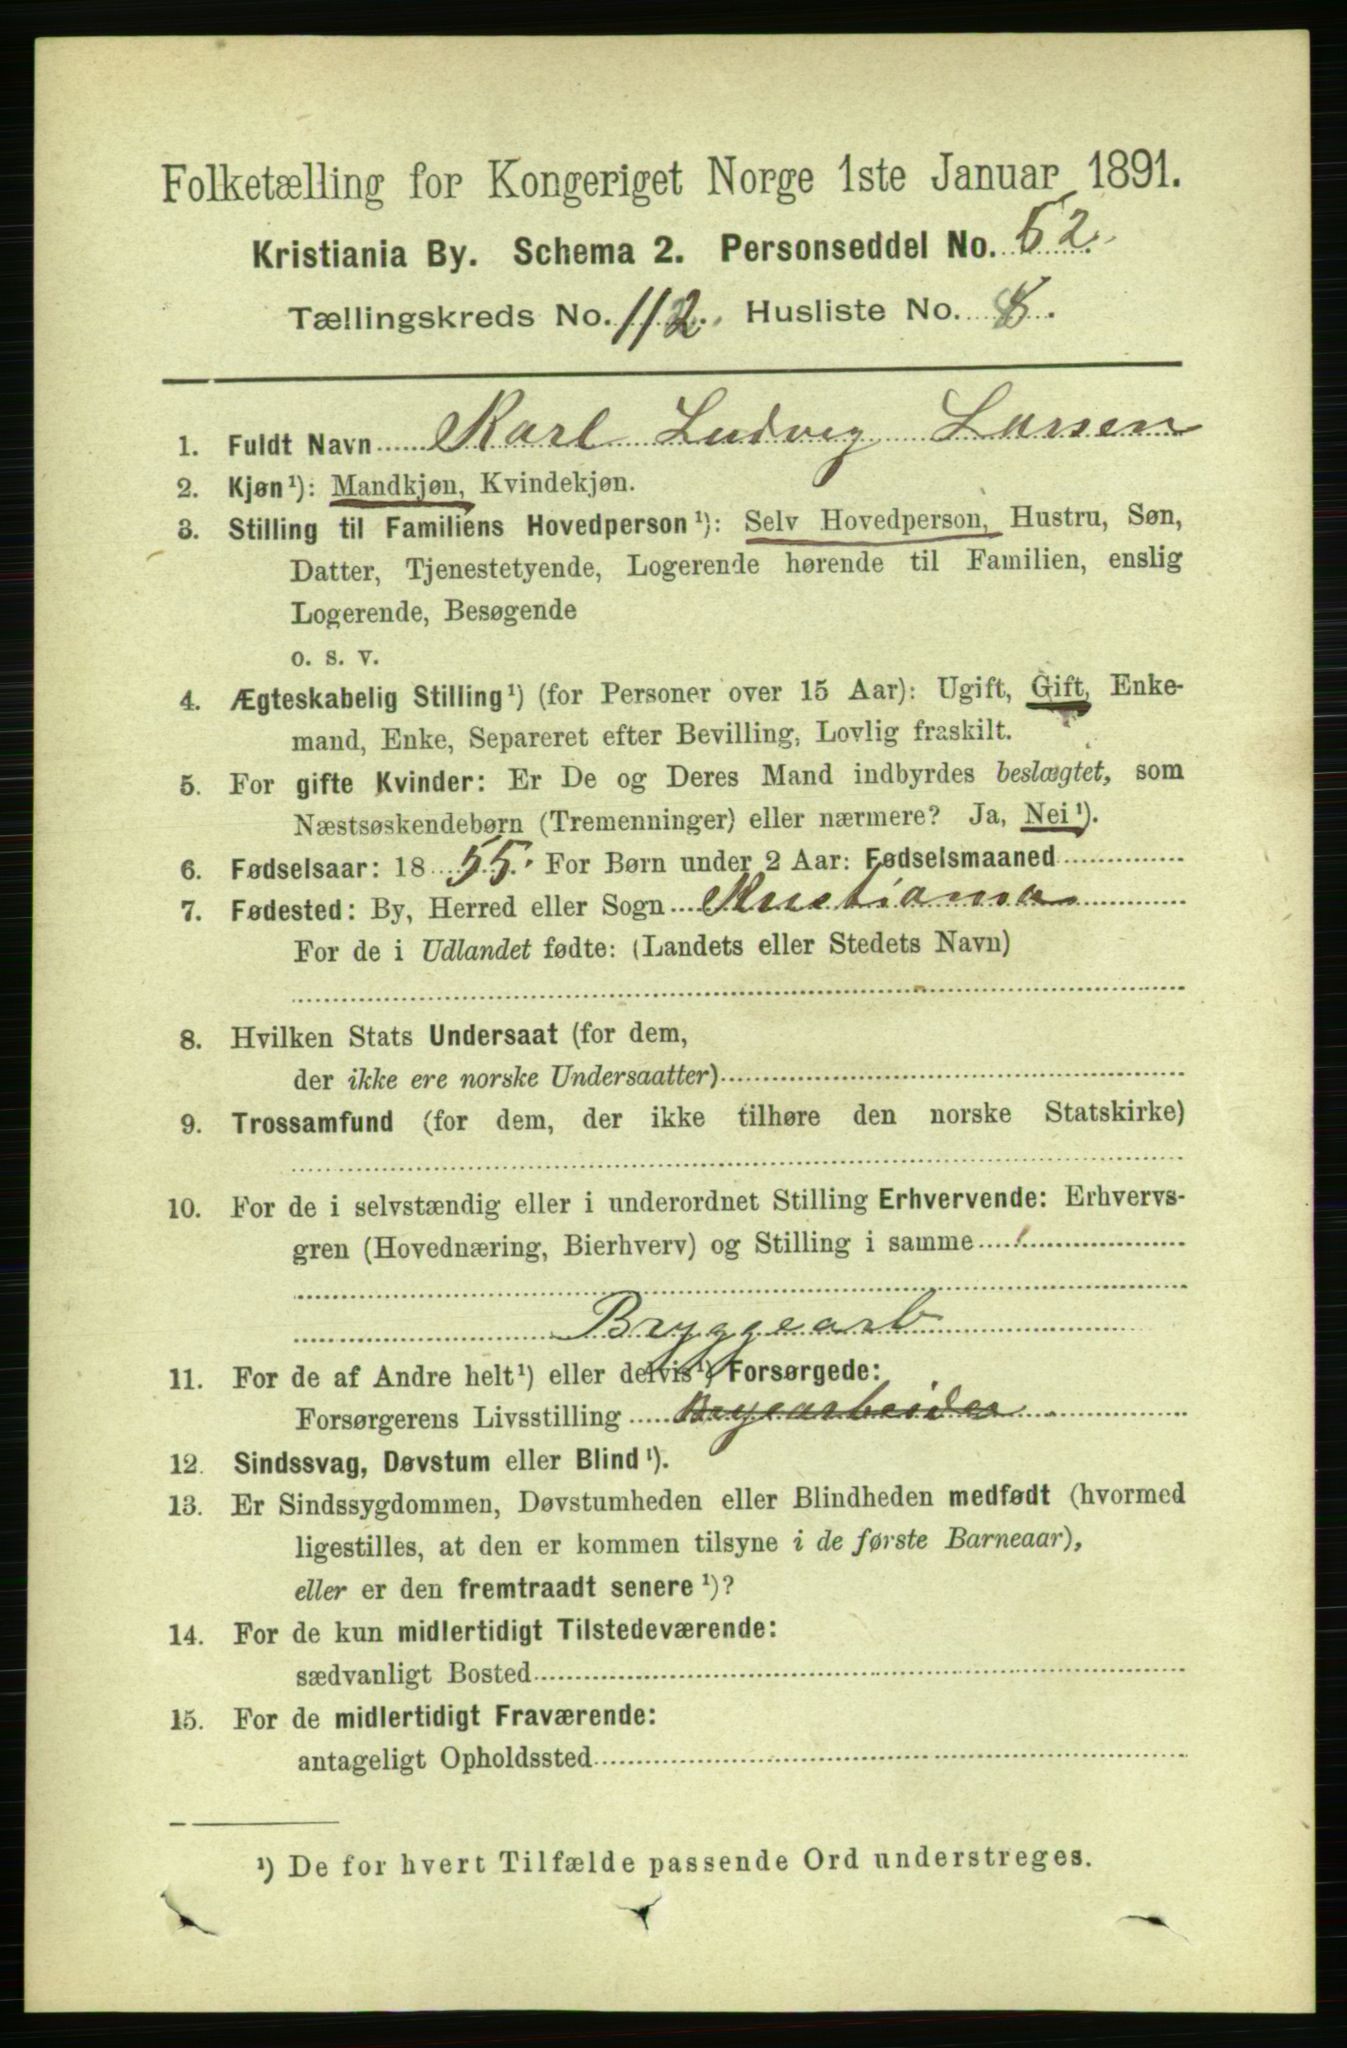 Folketælling for Kongeriget Norge 1ste Januar 1891.
Kristiania By. Schema 2. Personseddel No. 52.
Tællingskreds No. 112. Husliste No. 8.
1. Fuldt Navn Karl Ludvig Larsen
2. Kjøn¹): Mandkjøn, Kvindekjøn.
3. Stilling til Familiens Hovedperson¹): Selv Hovedperson, Hustru, Søn,
Datter, Tjenestetyende, Logerende hørende til Familien, enslig
Logerende, Besøgende
o. s. v.
4. Ægteskabelig Stilling¹) (for Personer over 15 Aar): Ugift, Gift, Enke-
mand, Enke, Separeret efter Bevilling, Lovlig fraskilt.
5. For gifte Kvinder: Er De og Deres Mand indbyrdes beslægtet, som
Næstsøskendebørn (Tremenninger) eller nærmere? Ja, Nei¹).
6. Fødselsaar: 1855. For Børn under 2 Aar: Fødselsmaaned
7. Fødested: By, Herred eller Sogn Kristiania
For de i Udlandet fødte: (Landets eller Stedets Navn)
8. Hvilken Stats Undersaat (for dem,
der ikke ere norske Undersaatter)
9. Trossamfund (for dem, der ikke tilhøre den norske Statskirke)
10. For de i selvstændig eller i underordnet Stilling Erhvervende: Erhvervs-
gren (Hovednæring, Bierhverv) og Stilling i samme
Bryggearb
11. For de af Andre helt¹) eller delvis¹) Forsørgede:
Forsørgerens Livsstilling Bryearbeider
12. Sindssvag, Døvstum eller Blind¹).
13. Er Sindssygdommen, Døvstumheden eller Blindheden medfødt (hvormed
ligestilles, at den er kommen tilsyne i de første Barneaar),
eller er den fremtraadt senere¹)?
14. For de kun midlertidigt Tilstedeværende:
sædvanligt Bosted
15. For de midlertidigt Fraværende:
antageligt Opholdssted
¹) De for hvert Tilfælde passende Ord understreges.